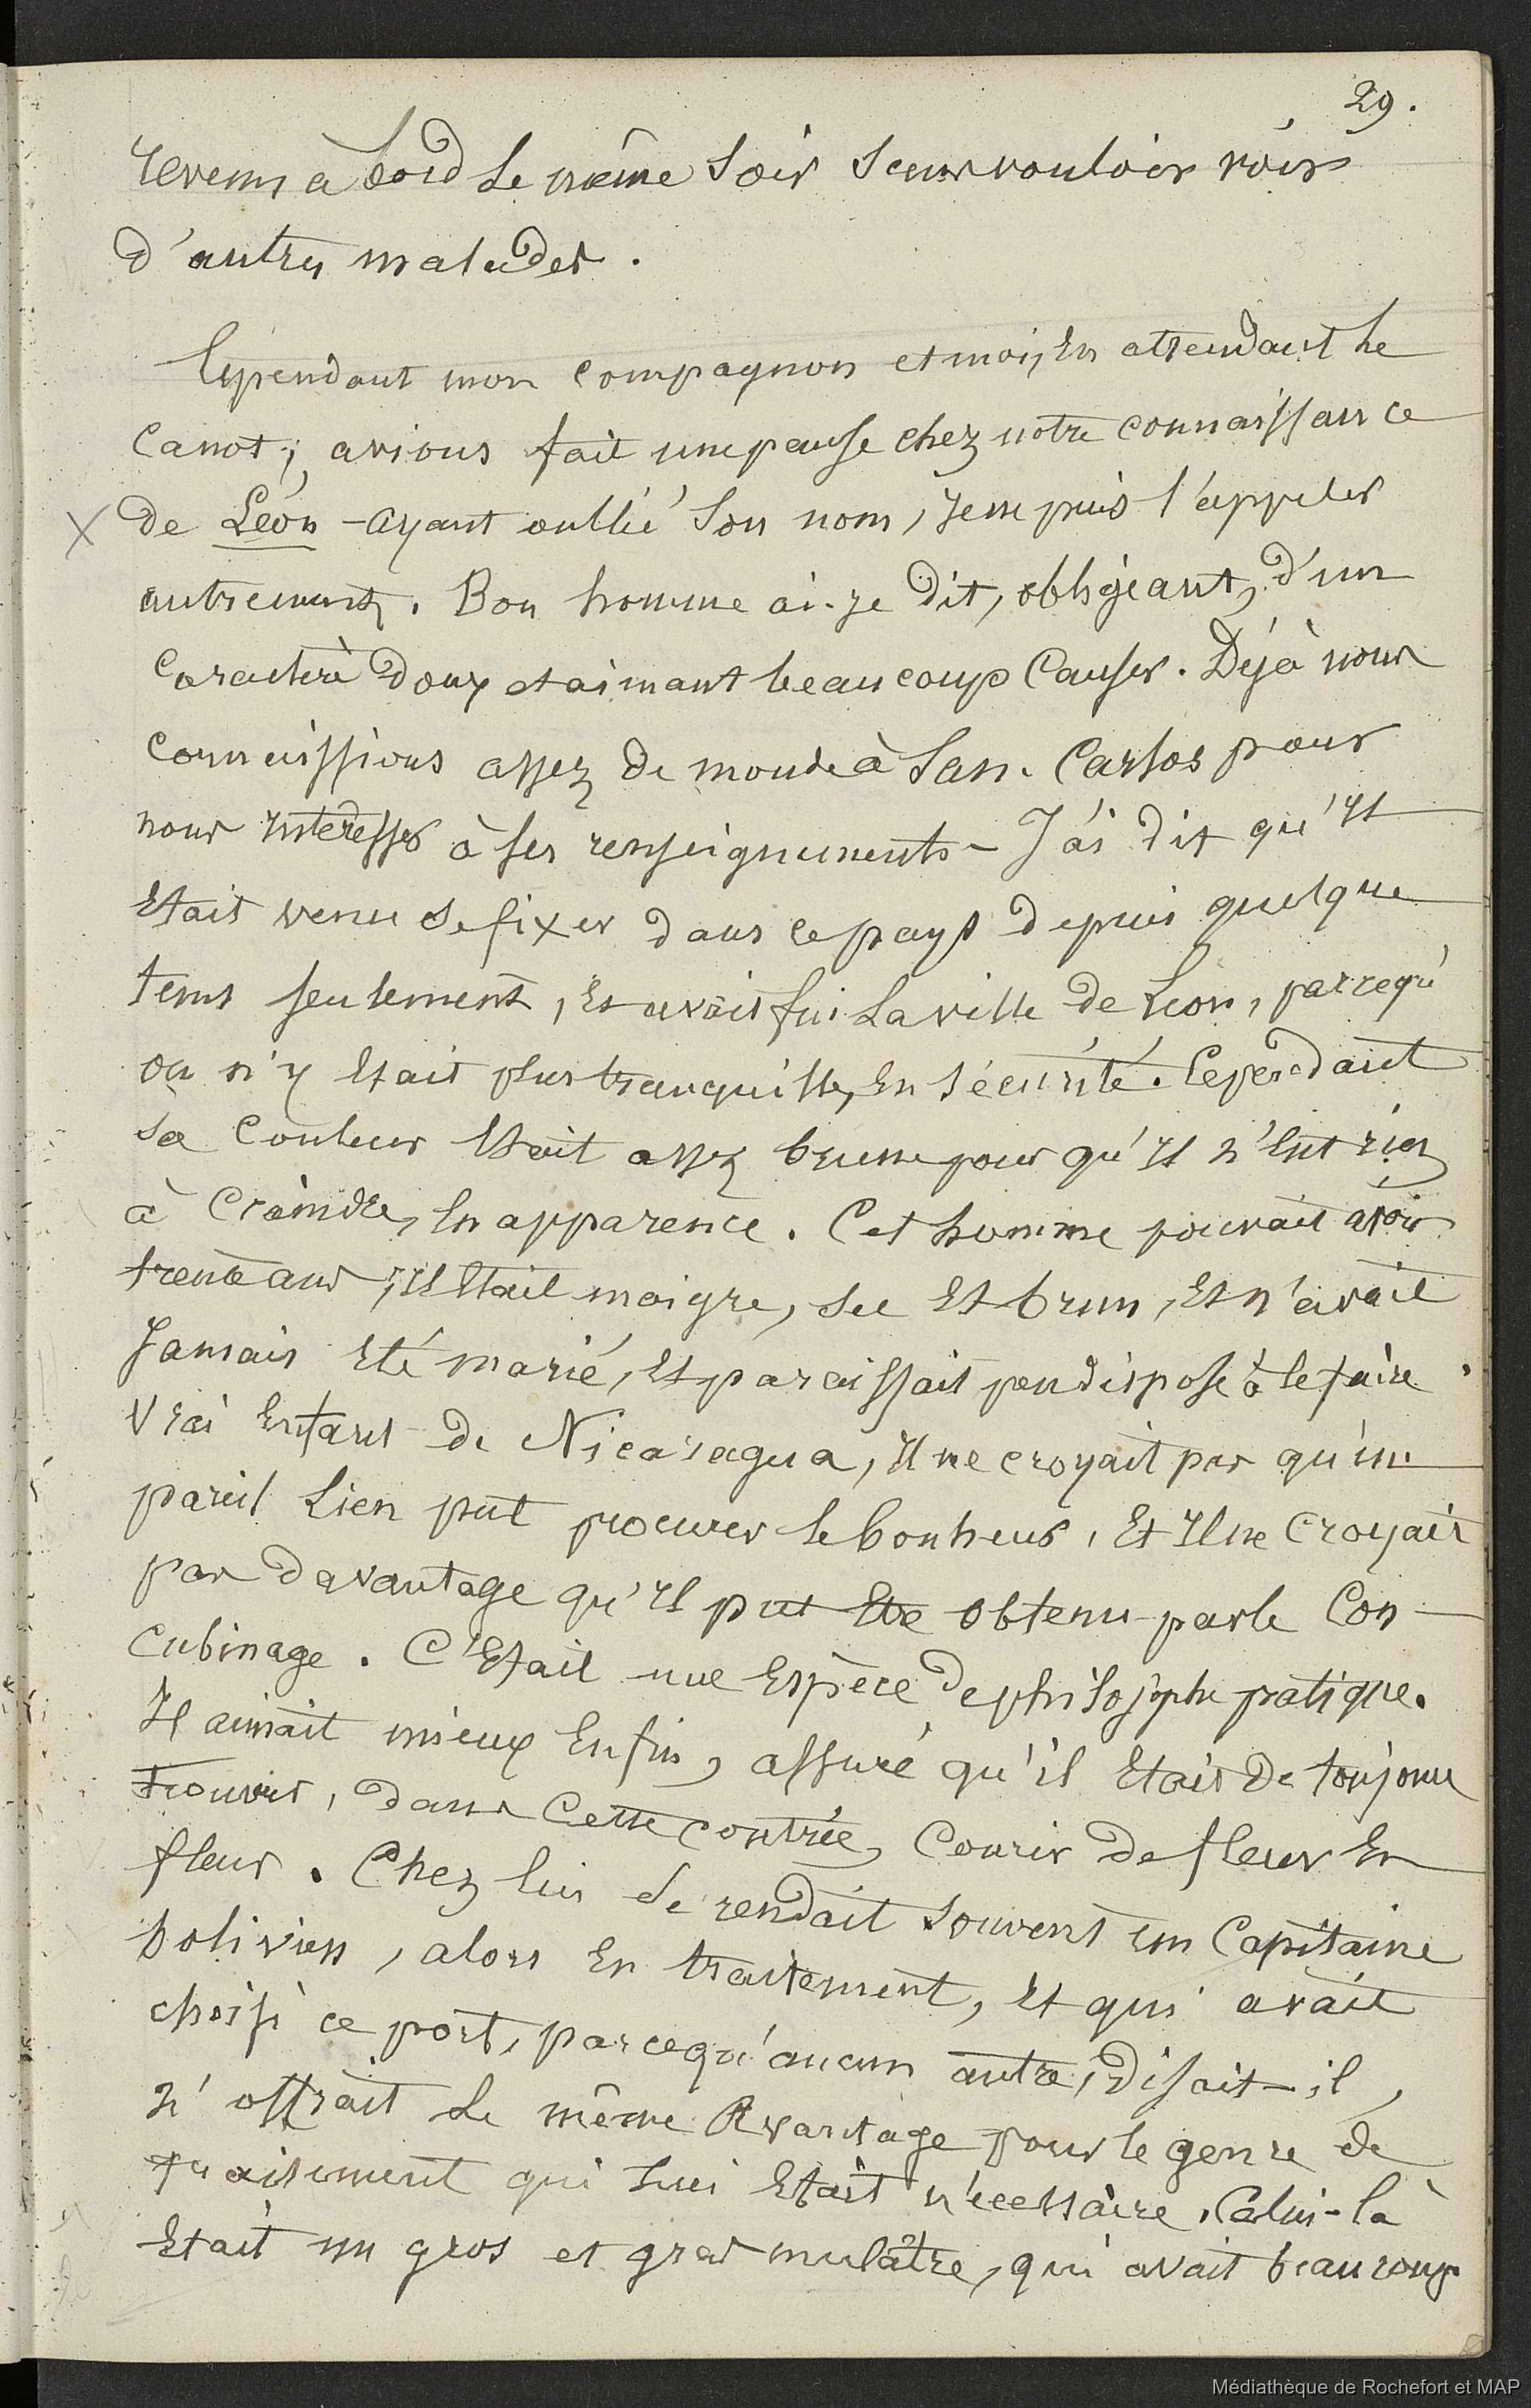 29.
revenus à bord le même soir sans vouloir voir
d'autres malades.
Cependant mon compagnon et moi, en attendant le
canot, avions fait une pause chez notre connaissance
X de Léon - ayant oublié son nom, je ne puis l'appeler
autrement. Bon homme ai-je dit, obligeant, d'un
caractère doux et aimant beaucoup causer. Déjà nous
connaissions assez de monde à San-Carlos pour
nous intéresser à ses renseignements - J'ai dit qu'il
était venu se fixer dans ce pays depuis quelque
tems seulement, et avait fui la ville de Léon, parcequ'
on n'y était plus tranquille, en sécurité. Cependant
sa couleur était assez brune pour qu'il n'eut rien
à craindre, en apparence. Cet homme pouvait avoir
trente ans, il était maigre, sec et brun, et n'avait
jamais été marié, et paraissait peu disposé à le faire.
Vrai enfant de Nicaragua, il ne croyait pas qu'un
pareil lien put procurer le bonheur, et il ne croyait
pas davantage qu'il put être obtenu par le con-
cubinage. C'était une espèce de philosophe pratique.
Il aimait mieux enfin, assuré qu'il était de toujours
trouver, dans cette contrée, courir de fleur en
fleur. Chez lui se rendait souvent un capitaine
bolivien, alors en traitement, et qui avait
choisi ce port, parcequ'aucun autre, disait-il,
n'offrait le même avantage pour le genre de
traitement qui lui était nécessaire. Celui-là
était un gros et gras mulâtre, qui avait beaucoup
Médiathèque de Rochefort et MAP